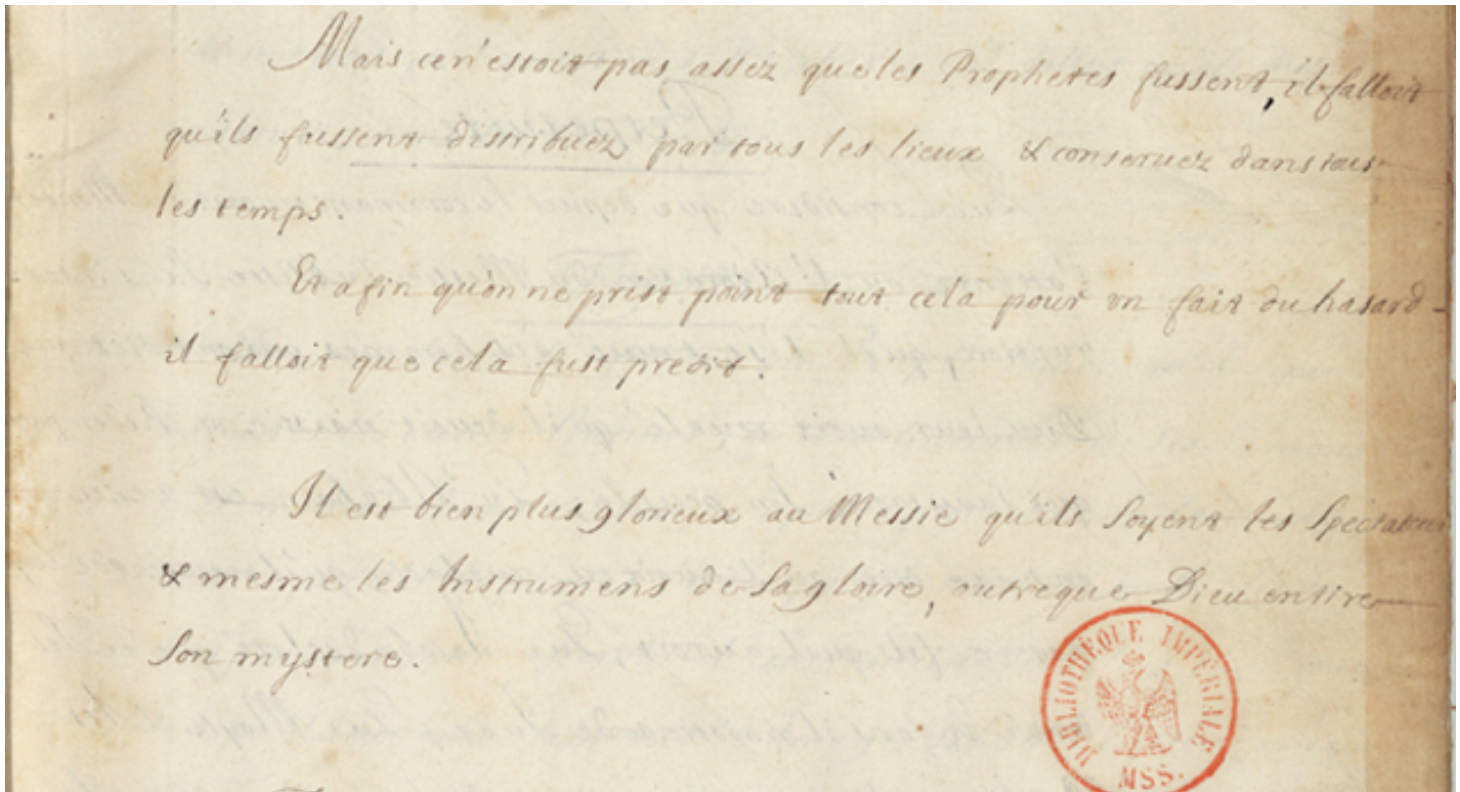 Mais ce n'estoit pas assez que les Prophetes fussent, il falloit
qu'ils fussent distribuez par tous les lieux & conseruez dans tous
les temps.
Et afin qu'on ne prist point tout cela pour vn fait du hasard
il falloit que cela fust predit.
Il est bien plus glorieux au Messie qu'ils soyent les Spectateurs
& mesme les Instrumens de sa gloire, outre que Dieu en tire
son mystere.
BIBLIOTHÈQUE IMPÉRIALE
MSS.